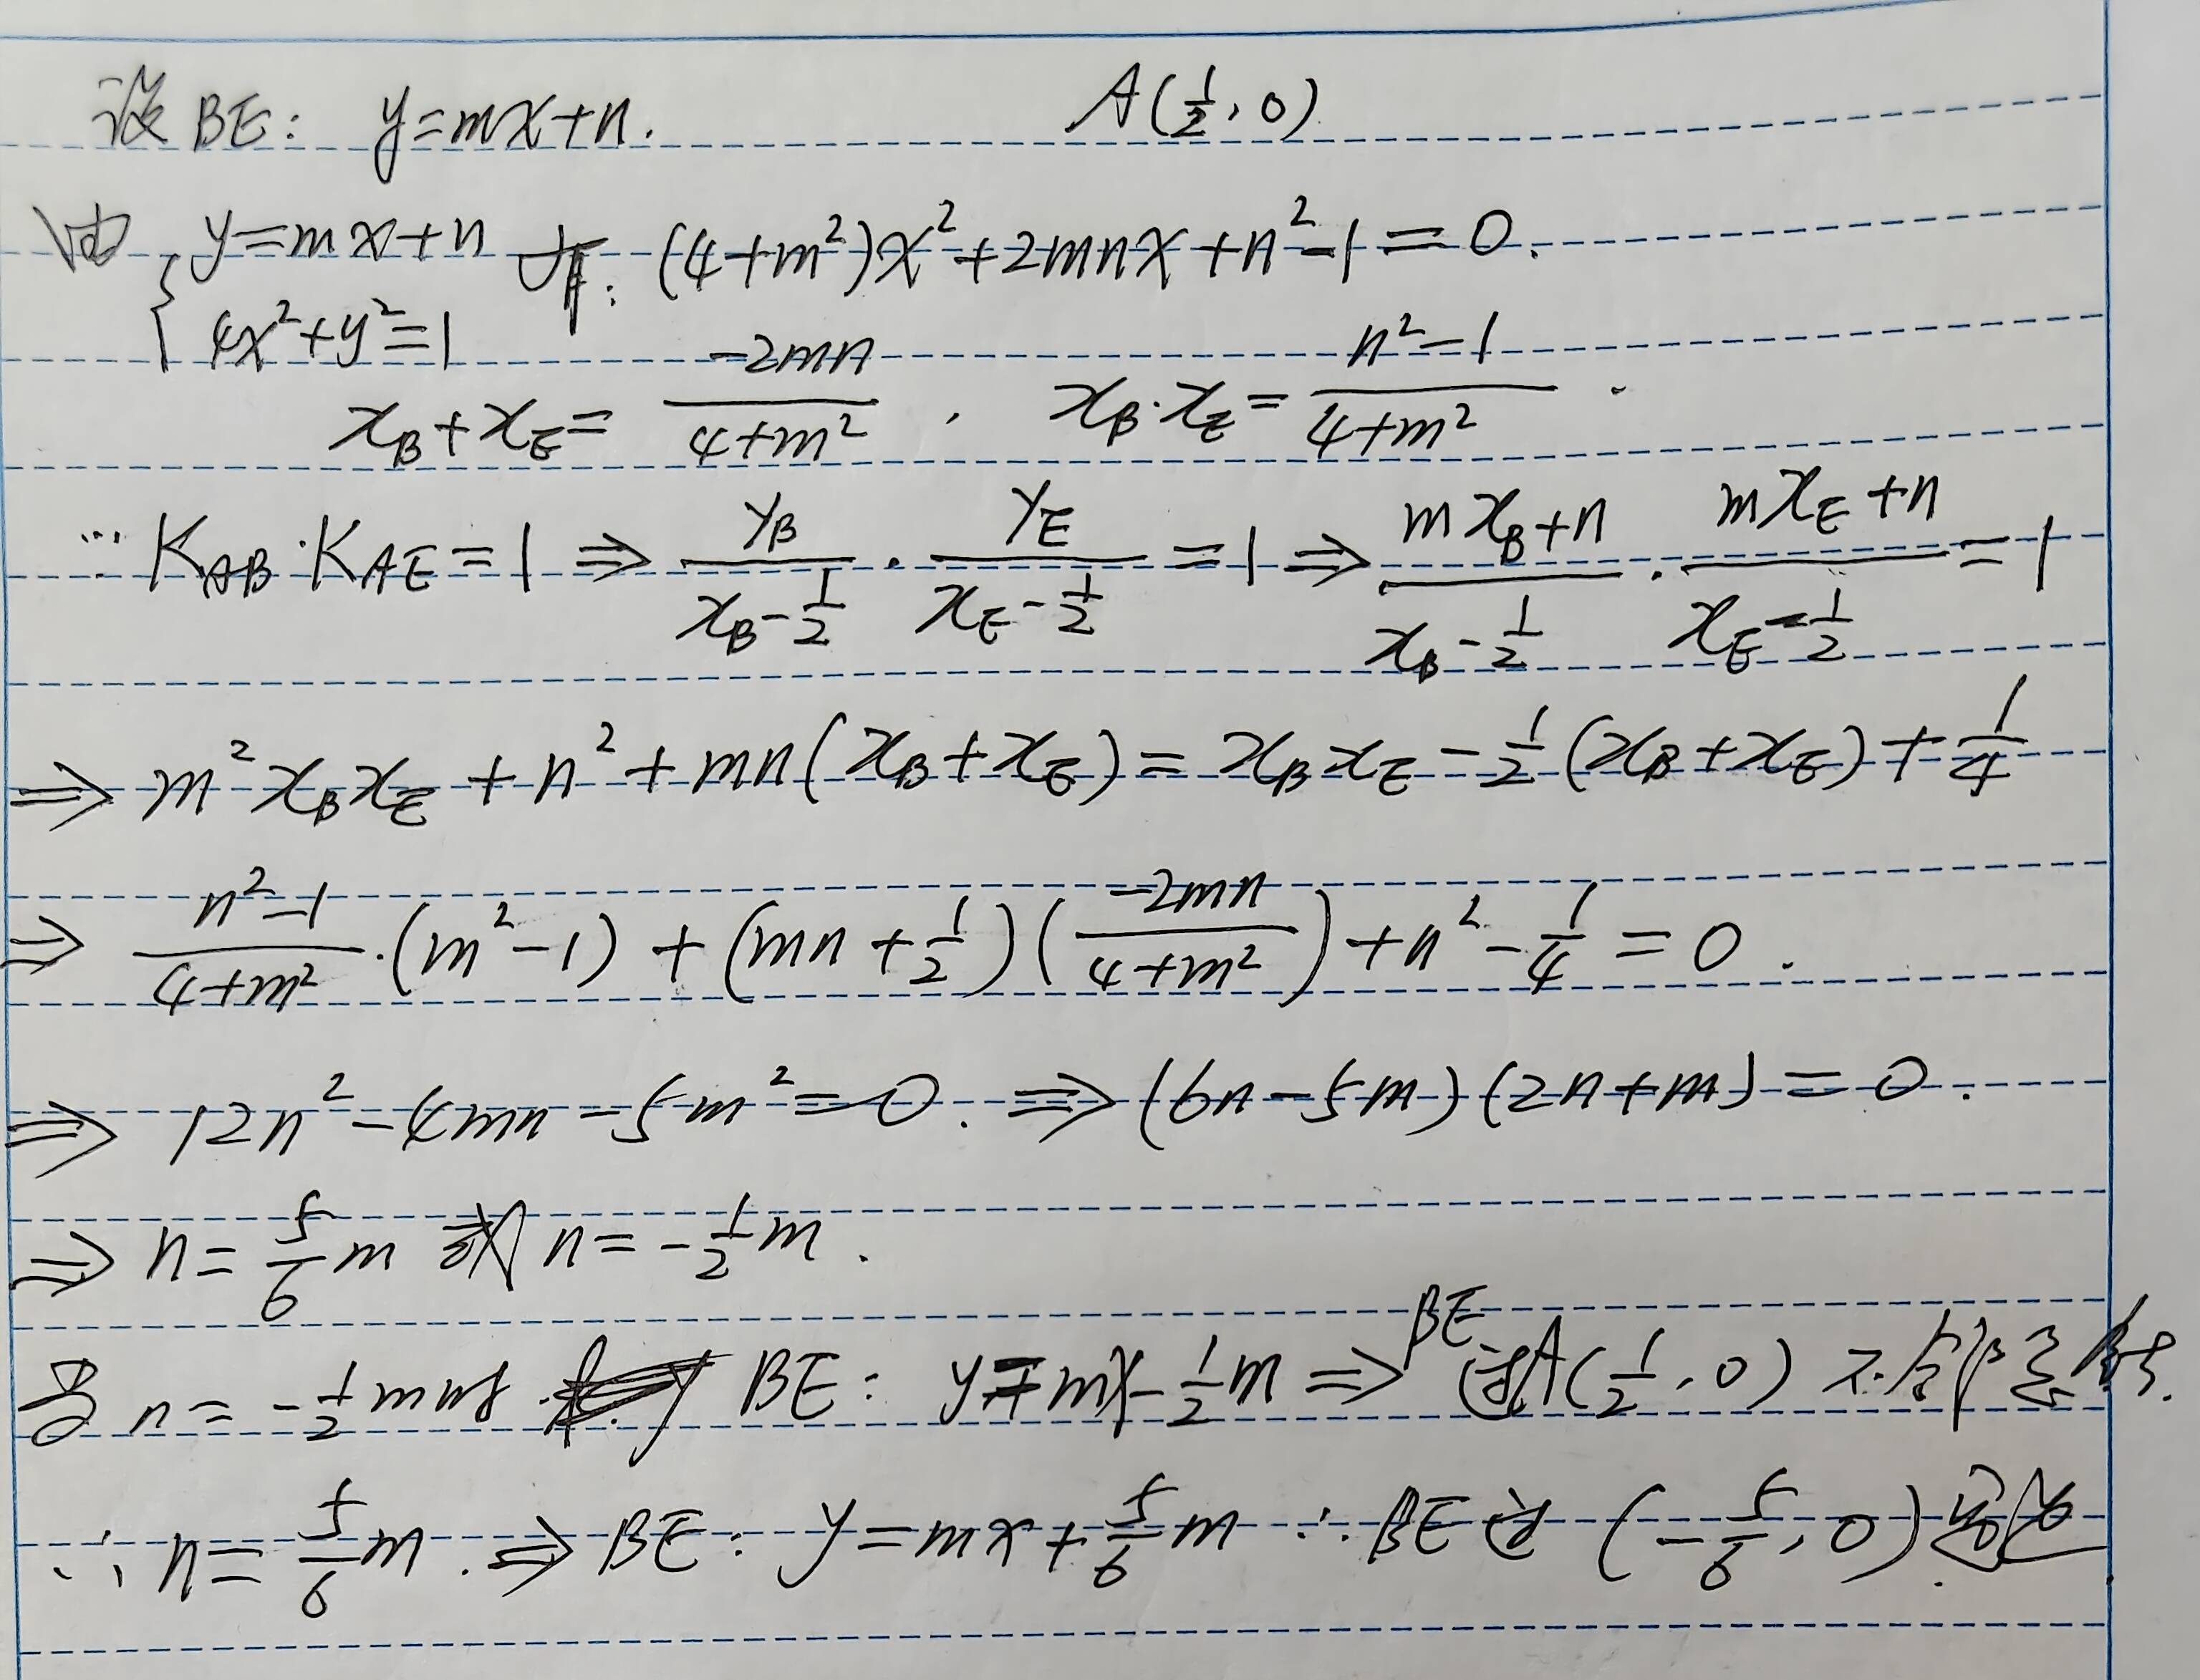 设BE: y=mx+n. A(1/2, 0)
由 { y=mx+n, 4x²+y²=1 有: (4+m²)x²+2mnx+n²-1=0.
x_B+x_E = -2mn/(4+m²), x_B·x_E = (n²-1)/(4+m²).
∵ K_AB·K_AE=1 ⇒ y_B/(x_B-1/2) · y_E/(x_E-1/2) = 1 ⇒ (mx_B+n)/(x_B-1/2) · (mx_E+n)/(x_E-1/2) = 1
⇒ m²x_Bx_E+n²+mn(x_B+x_E) = x_Bx_E-1/2(x_B+x_E)+1/4
⇒ (n²-1)/(4+m²)·(m²-1)+(mn+1/2)(-2mn/(4+m²))+n²-1/4=0.
⇒ 12n²-4mn-5m²=0. ⇒ (6n-5m)(2n+m)=0.
⇒ n=5/6m 或 n=-1/2m.
当 n=-1/2m时 BE: y=mx-1/2m ⇒ BE过A(1/2, 0) 不合题意舍.
∴ n=5/6m. ⇒ BE: y=mx+5/6m ∴ BE过 (-5/6, 0) 定点.